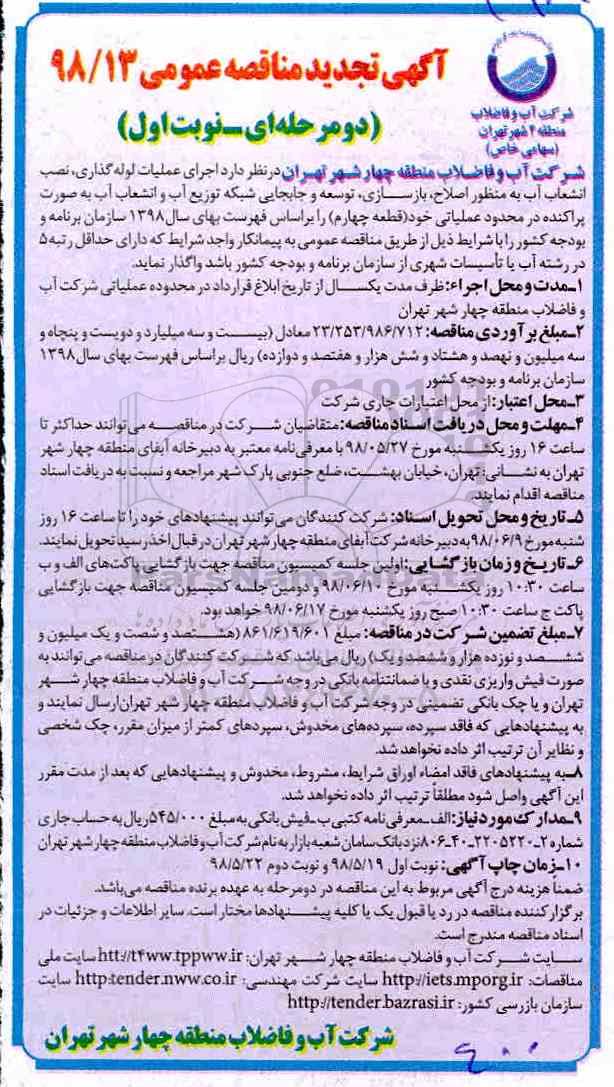 شرکت آب و فاضلاب
منطقه ۴ شهر تهران
(سهامی خاص)
آگهی تجدید مناقصه عمومی ۹۸/۱۳
(دو مرحله‌ای ـ نوبت اول)
شرکت آب و فاضلاب منطقه چهار شهر تهران در نظر دارد اجرای عملیات لوله گذاری، نصب
انشعاب آب به منظور اصلاح، بازسازی، توسعه و جابجایی شبکه توزیع آب و انشعاب آب به صورت
پراکنده در محدود عملیاتی خود (قطعه چهارم) را براساس فهرست بهای سال ۱۳۹۸ سازمان برنامه و
بودجه کشور را با شرایط ذیل از طریق مناقصه عمومی به پیمانکار واجد شرایط که دارای حداقل رتبه ۵
در رشته آب یا تأسیسات شهری از سازمان برنامه و بودجه کشور باشد واگذار نماید.
۱ـ مدت و محل اجراء: ظرف مدت یکسال از تاریخ ابلاغ قرارداد در محدوده عملیاتی شرکت آب
و فاضلاب منطقه چهار شهر تهران
۲ـ مبلغ برآوردی مناقصه: ۲۳/۲۵۳/۹۸۶/۷۱۲ معادل (بیست و سه میلیارد و دویست و پنجاه و
سه میلیون و نهصد و هشتاد و شش هزار و هفتصد و دوازده) ریال براساس فهرست بهای سال ۱۳۹۸
سازمان برنامه و بودجه کشور
۳ـ محل اعتبار: از محل اعتبارات جاری شرکت
۴ـ مهلت و محل دریافت اسناد مناقصه: متقاضیان شرکت در مناقصه می‌توانند حداکثر تا
ساعت ۱۶ روز یکشنبه مورخ ۹۸/۰۵/۲۷ با معرفی‌نامه معتبر به دبیرخانه آبفای منطقه چهار شهر
تهران به نشانی: تهران، خیابان بهشت، ضلع جنوبی پارک شهر مراجعه و نسبت به دریافت اسناد
مناقصه اقدام نمایند.
۵ـ تاریخ و محل تحویل اسناد: شرکت کنندگان می‌توانند پیشنهادهای خود را تا ساعت ۱۶ روز
شنبه مورخ ۹۸/۰۶/۹ به دبیرخانه شرکت آبفای منطقه چهار شهر تهران در قبال اخذ رسید تحویل نمایند.
۶ـ تاریخ و زمان بازگشایی: اولین جلسه کمیسیون مناقصه جهت بازگشایی پاکت‌های الف و ب
ساعت ۱۰:۳۰ روز یکشنبه مورخ ۹۸/۰۶/۱۰ و دومین جلسه کمیسیون مناقصه جهت بازگشایی
پاکت ج ساعت ۱۰:۳۰ صبح روز یکشنبه مورخ ۹۸/۰۶/۱۷ خواهد بود.
۷ـ مبلغ تضمین شرکت در مناقصه: مبلغ ۸۶۱/۶۱۹/۶۰۱ (هشتصد و شصت و یک میلیون و
ششصد و نوزده هزار و ششصد و یک) ریال می‌باشد که شرکت کنندگان در مناقصه می‌توانند به
صورت فیش واریزی نقدی و یا ضمانتنامه بانکی در وجه شرکت آب و فاضلاب منطقه چهار شهر
تهران و یا چک بانکی تضمینی در وجه شرکت آب و فاضلاب منطقه چهار شهر تهران ارسال نمایند و
به پیشنهادهایی که فاقد سپرده، سپرده‌های مخدوش، سپردهای کمتر از میزان مقرر، چک شخصی
و نظایر آن ترتیب اثر داده نخواهد شد.
۸ـ به پیشنهادهای فاقد امضاء اوراق شرایط، مشروط، مخدوش و پیشنهادهایی که بعد از مدت مقرر
این آگهی واصل شود مطلقاً ترتیب اثر داده نخواهد شد.
۹ـ مدارک مورد نیاز: الف ـ معرفی نامه کتبی ب ـ فیش بانکی به مبلغ ۵۴۵/۰۰۰ ریال به حساب جاری
شماره ۲ـ۲۲۰۵۲۲۰ـ۴۰ـ۸۰۶ نزد بانک سامان شعبه بازار به نام شرکت آب و فاضلاب منطقه چهار شهر تهران
۱۰ـ زمان چاپ آگهی: نوبت اول ۹۸/۵/۱۹ و نوبت دوم ۹۸/۵/۲۲
ضمناً هزینه درج آگهی مربوط به این مناقصه در دو مرحله به عهده برنده مناقصه می‌باشد.
برگزار کننده مناقصه در رد یا قبول یک یا کلیه پیشنهادها مختار است. سایر اطلاعات و جزئیات در
اسناد مناقصه مندرج است.
سایت شرکت آب و فاضلاب منطقه چهار شهر تهران: htt://t4ww.tppww.ir سایت ملی
مناقصات: http://iets.mporg.ir سایت شرکت مهندسی: http:tender.nww.co.ir سایت
سازمان بازرسی کشور: http://tender.bazrasi.ir
شرکت آب و فاضلاب منطقه چهار شهر تهران